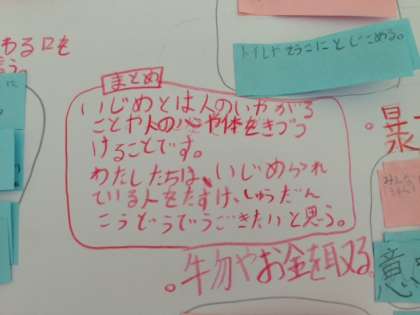 ある口を
言う。
トイレやそうこにとじこめる。
まとめ
いじめとは人のいやがる
ことや人の心や体をきづつ
けることです。
わたしたちは、いじめられ
ている人をたすけ、しゅうだん
こうどうでうごきたいと思う。
。物やお金を取る。
。暴
みんな
意